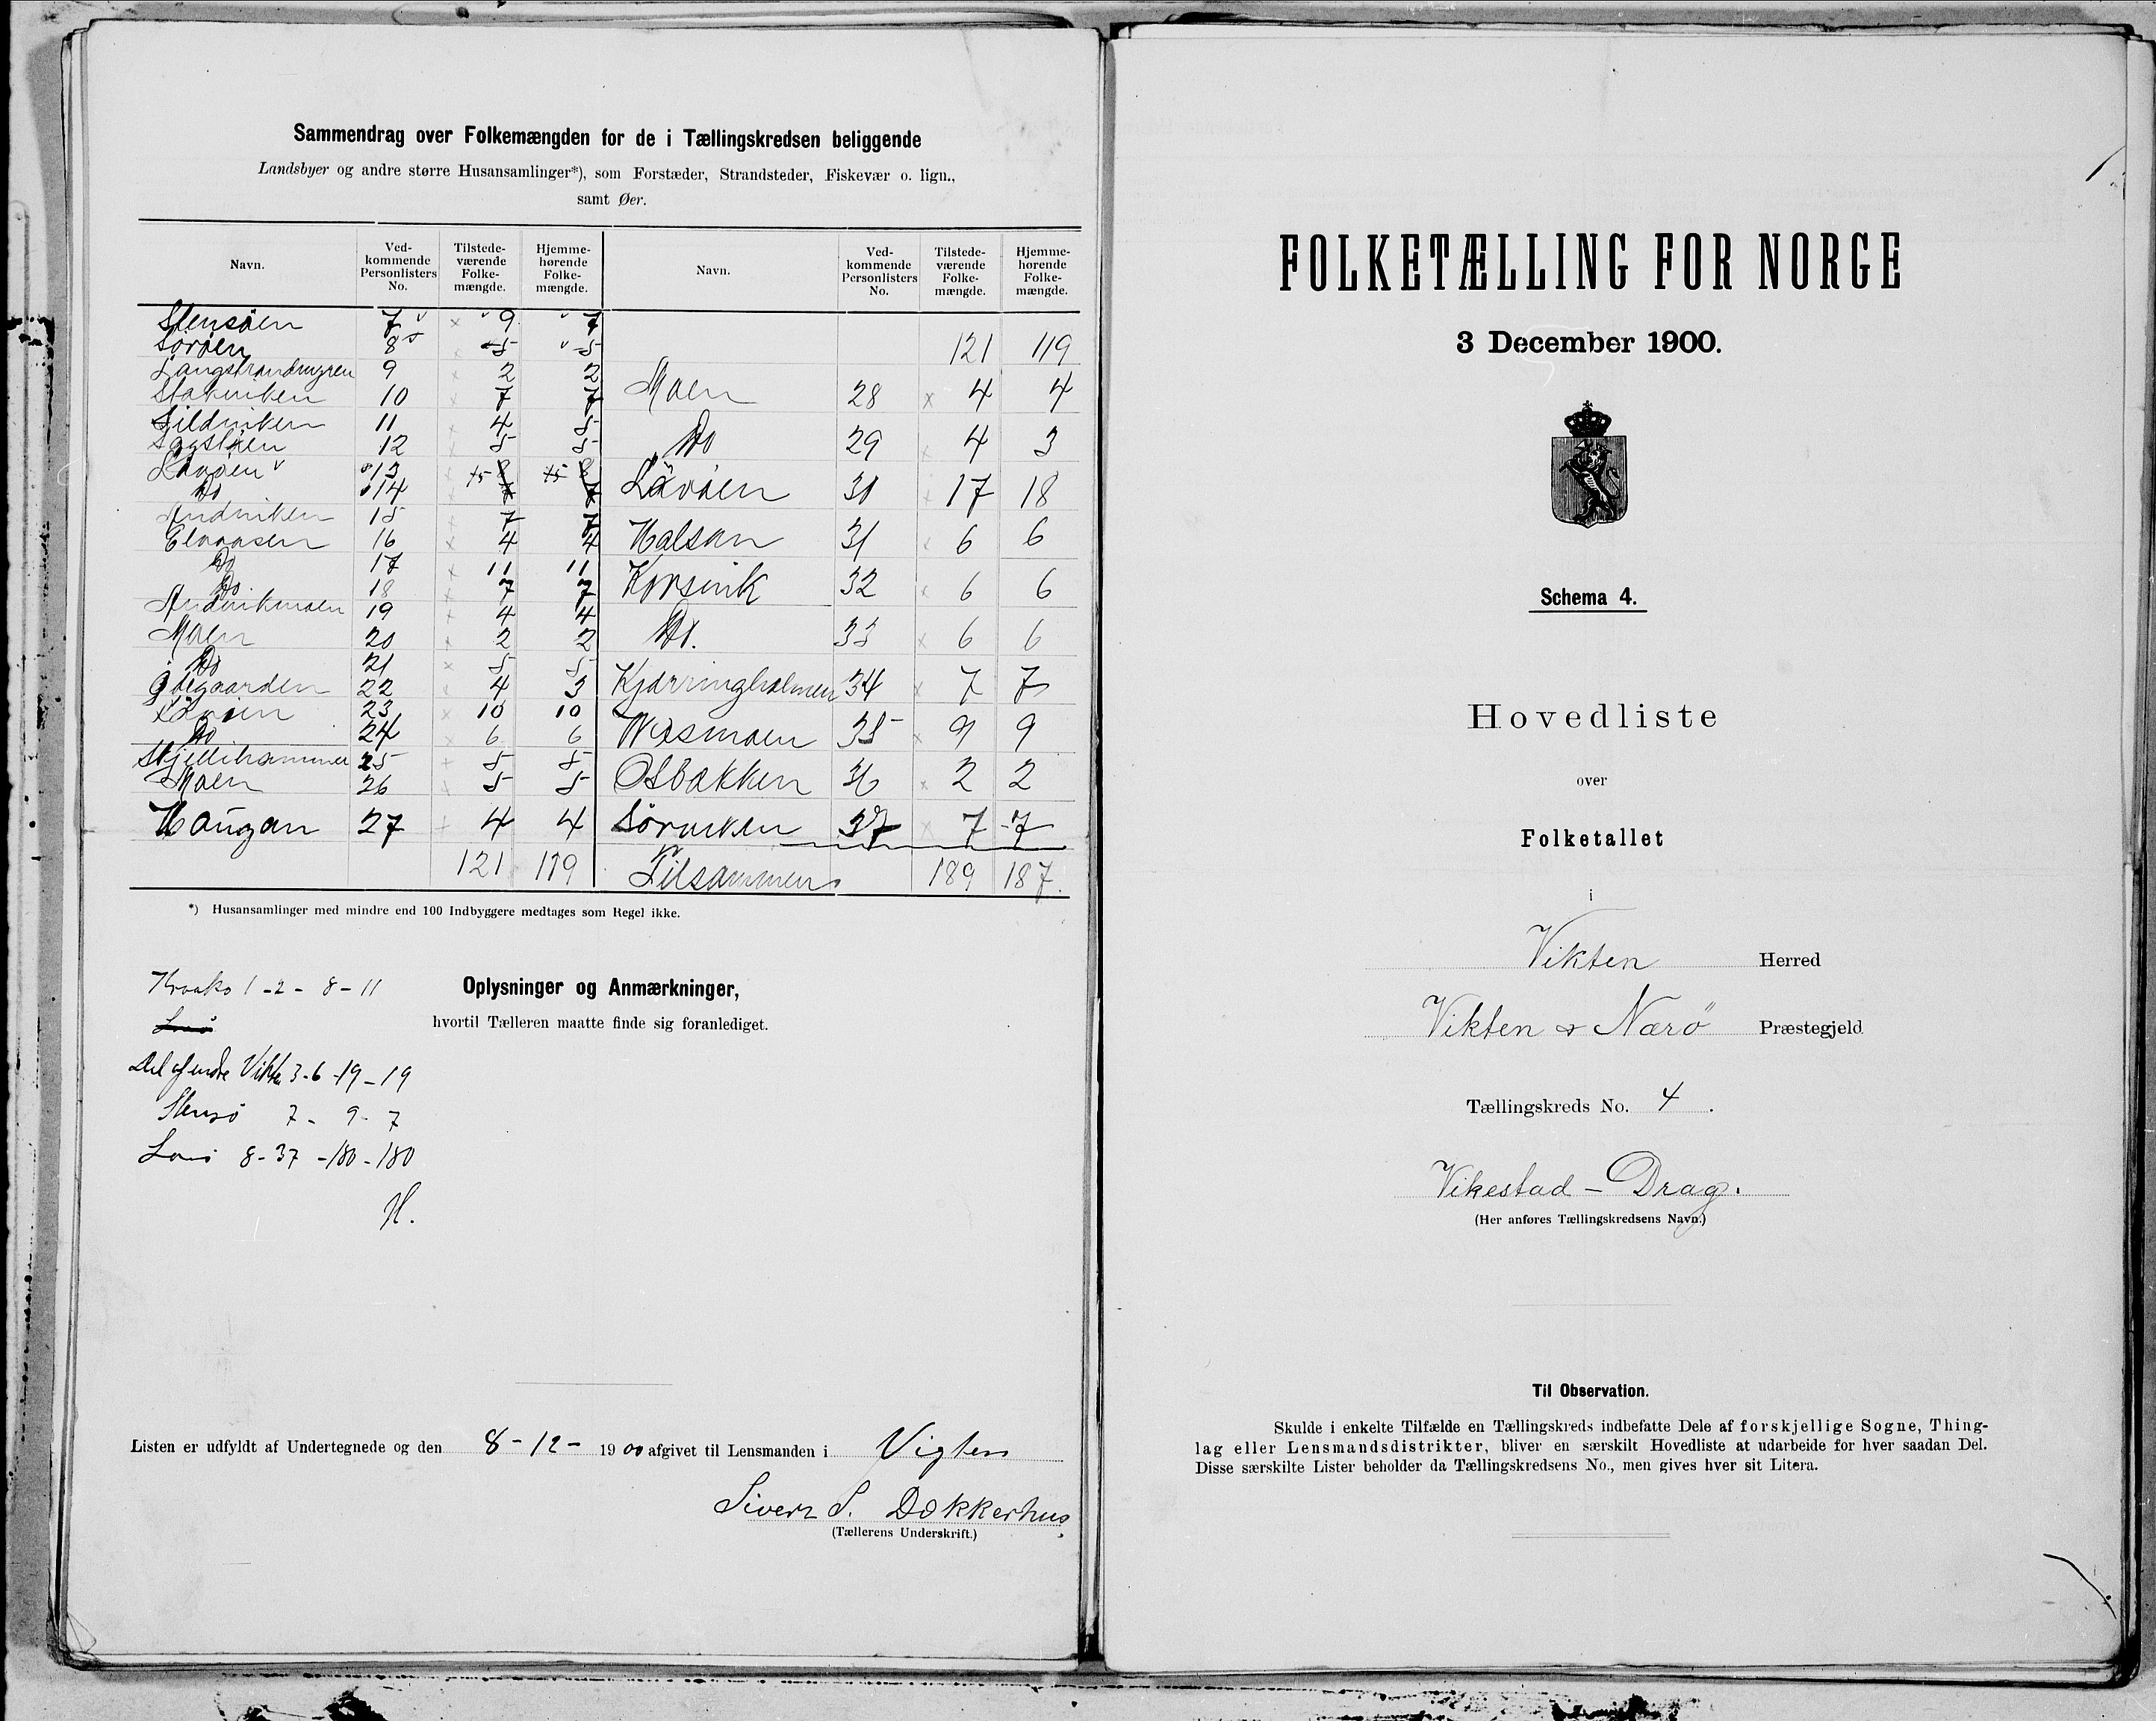 Sammendrag over Folkemængden for de i Tællingskredsen beliggende
Landsbyer og andre større Husansamlinger*), som Forstæder, Strandsteder, Fiskevær o. lign.,
samt Øer.
Navn. Ved-kommende Personlisters No. Tilstede-værende Folke-mængde. Hjemme-hørende Folke-mængde.
Stensöen 7 9 7
Soröen 8 5 5
Langstrandmyren 9 2 2
10 7 7
Sildviken 11 4 5
12 5 5
Lövöen 13
Do 14
Andviken 15 7 7
16 4 4
Do 17 11 11
Do 18 7 7
Andvikmoen 19 4 4
Moen 20 2 2
Do 21 5 5
22 4 3
Lövöen 23 10 10
Do 24 6 6
25 5 5
Moen 26 5 5
Haugan 27 4 4
121 119
Navn. Ved-kommende Personlisters No. Tilstede-værende Folke-mængde. Hjemme-hørende Folke-mængde.
121 119
Moen 28 4 4
Do 29 4 3
Lövöen 30 17 18
Halsan 31 6 6
Korsvik 32 6 6
Do. 33 6 6
Kjærringholmen 34 7 7
35 9 9
Osbakken 36 2 2
Sörviken 37 7 7
Tilsammen 189 187.
*) Husansamlinger med mindre end 100 Indbyggere medtages som Regel ikke.
Oplysninger og Anmærkninger,
hvortil Tælleren maatte finde sig foranlediget.
1 - 2 - 8 - 11
Del af indre Vikten 3-6 -19 -19
Stensö 7 - 9 - 7
8 - 37 - 180 - 180
H.
Listen er udfyldt af Undertegnede og den 8 - 12 - 1900 afgivet til Lensmanden i Vigten
Sivert S. Dokkerhus
(Tællerens Underskrift.)
FOLKETÆLLING FOR NORGE
3 December 1900.
Schema 4.
Hovedliste
over
Folketallet
i
Vikten Herred
Vikten & Nærö Præstegjeld
Tællingskreds No. 4.
Vikestad - Drag.
(Her anføres Tællingskredsens Navn.)
Til Observation.
Skulde i enkelte Tilfælde en Tællingskreds indbefatte Dele af forskjellige Sogne, Thing-
lag eller Lensmandsdistrikter, bliver en særskilt Hovedliste at udarbeide for hver saadan Del.
Disse særskilte Lister beholder da Tællingskredsens No., men gives hver sit Litera.